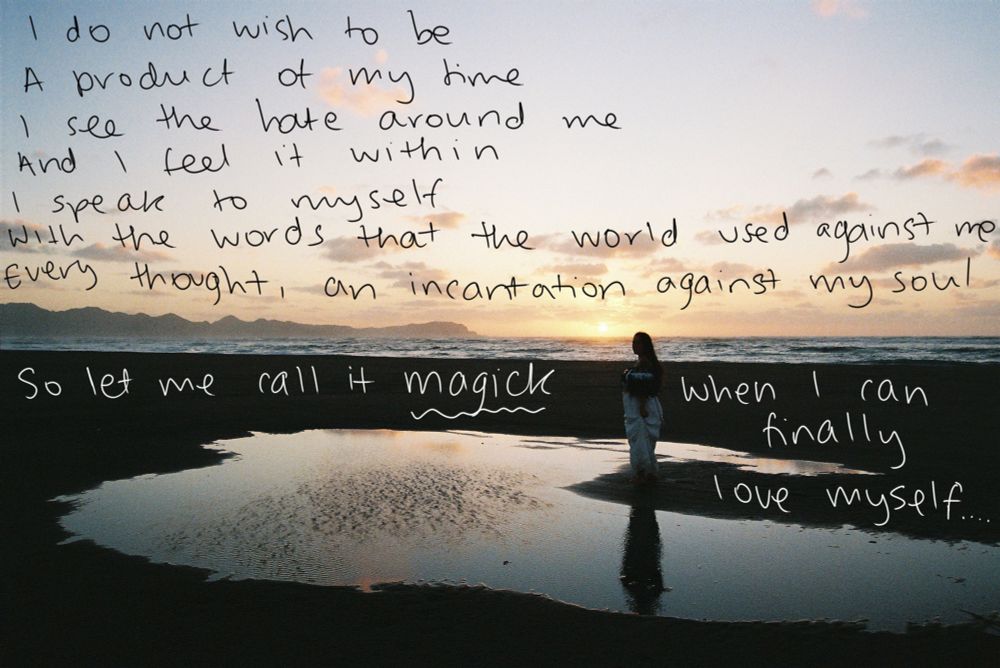 I do not wish to be
A product of my time
I see the hate around me
And I feel it within
I speak to myself
With the words that the world used against me
Every thought, an incantation against my soul
So let me call it magick
When I can
finally
love myself....